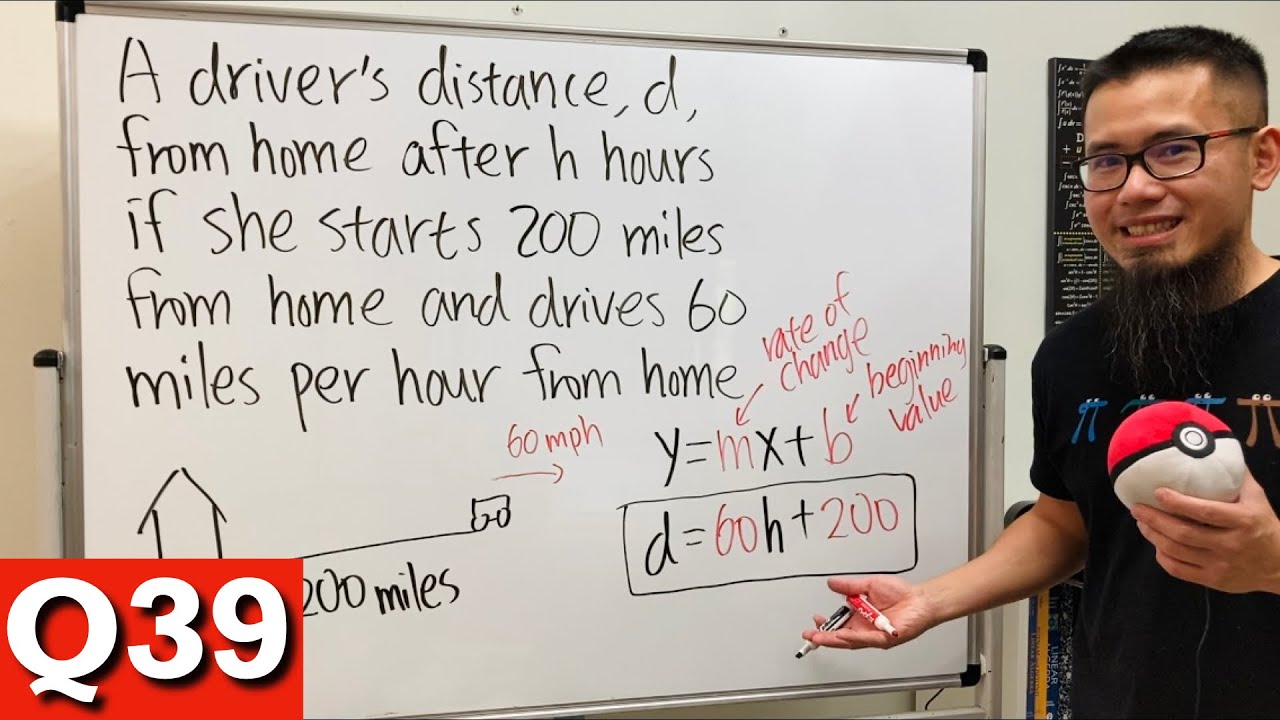 A driver's distance, d,
from home after h hours
if she starts 200 miles
from home and drives 60
miles per hour from home
rate of
change
beginning
value
60 mph
y=mx+b
d=60h+200
200 miles
Q39